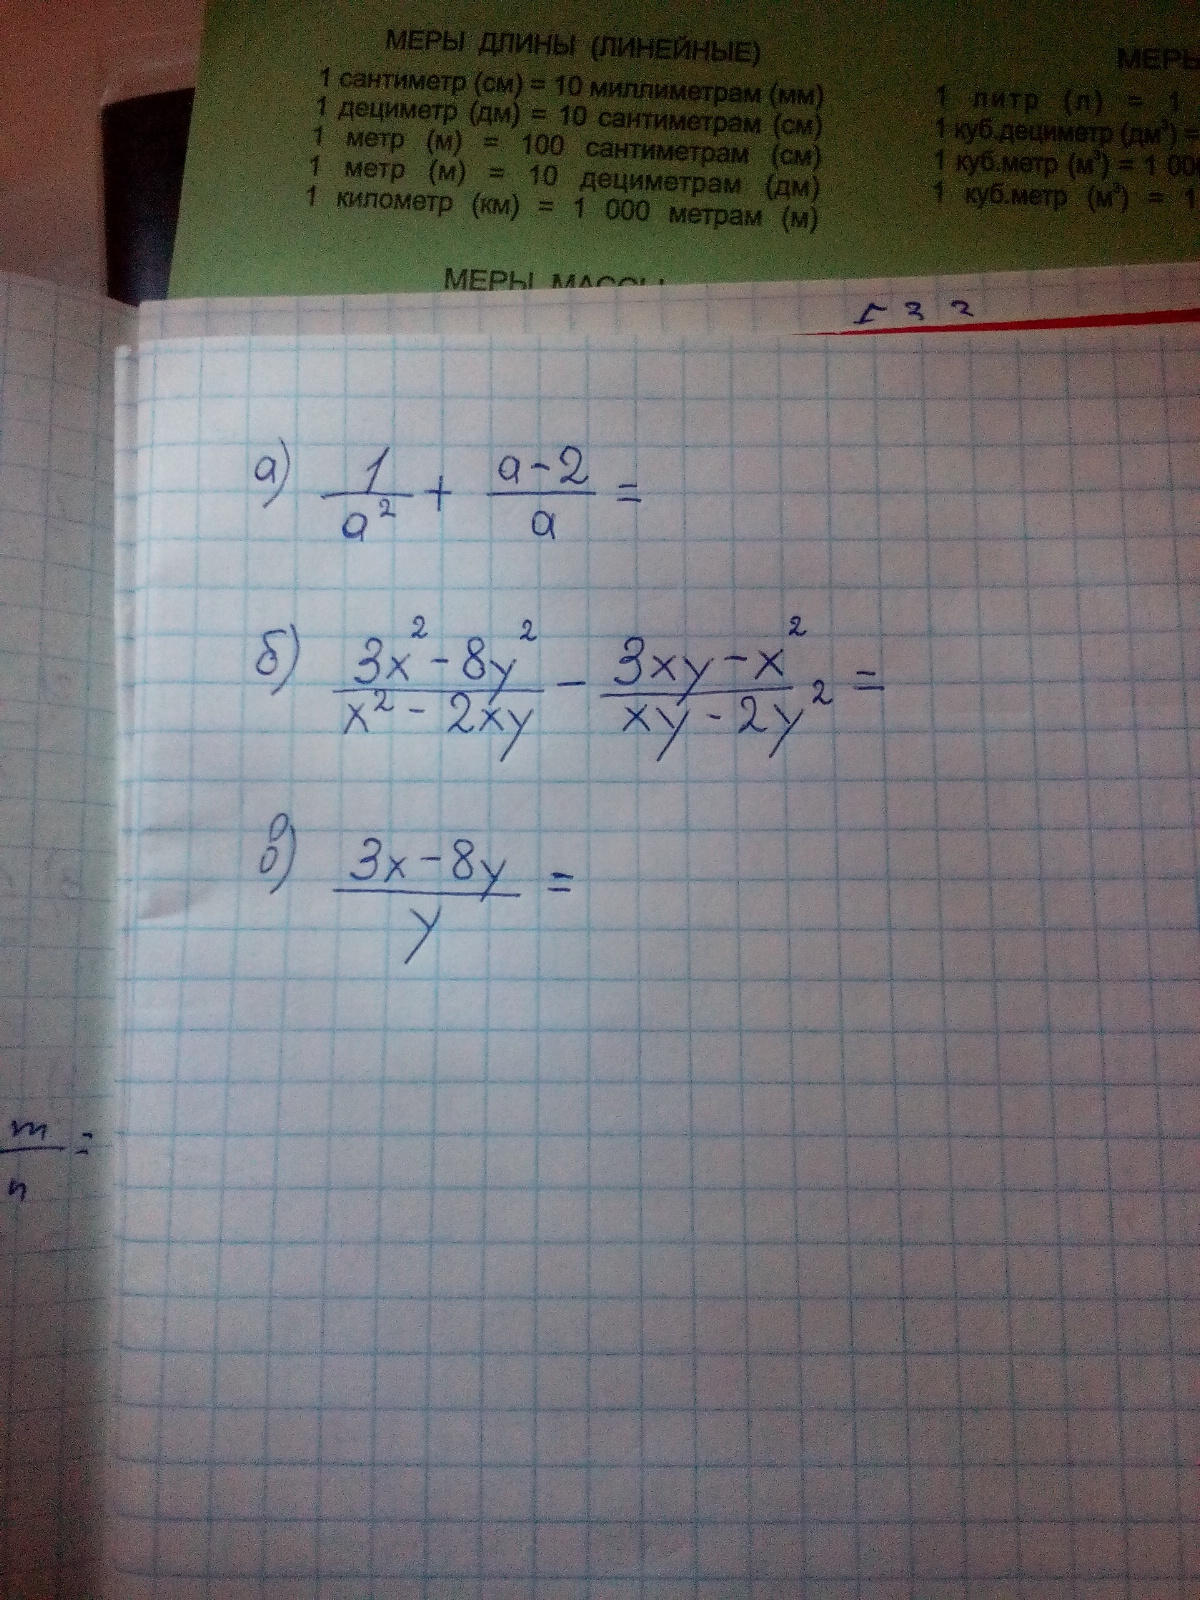 МЕРЫ ДЛИНЫ (ЛИНЕЙНЫЕ)
1 сантиметр (см) = 10 миллиметрам (мм)
1 дециметр (дм) = 10 сантиметрам (см)
1 метр (м) = 100 сантиметрам (см)
1 метр (м) = 10 дециметрам (дм)
1 километр (км) = 1 000 метрам (м)
МЕРЫ МАССЫ
МЕРЫ
1 литр (л) = 1
1 куб.дециметр (дм³) =
1 куб.метр (м³) = 1 000
1 куб.метр (м³) = 1
а) 1/a² + (a-2)/a =
б) (3x²-8y²)/(x²-2xy) - (3xy-x²)/(xy-2y²) =
в) (3x-8y)/y =
m/n =